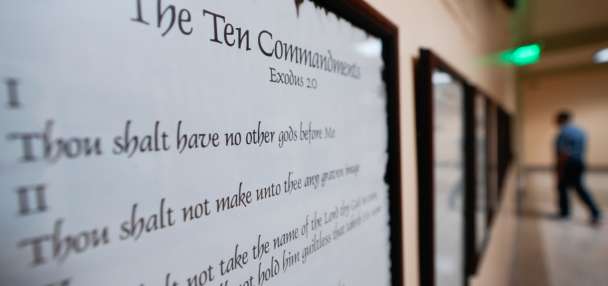 The Ten Commandments
Exodus 20
I
Thou shalt have no other gods before Me
II
Thou shalt not make unto thee any graven image
shalt not take the name of the Lord thy God in vain
not hold him guiltless that taketh